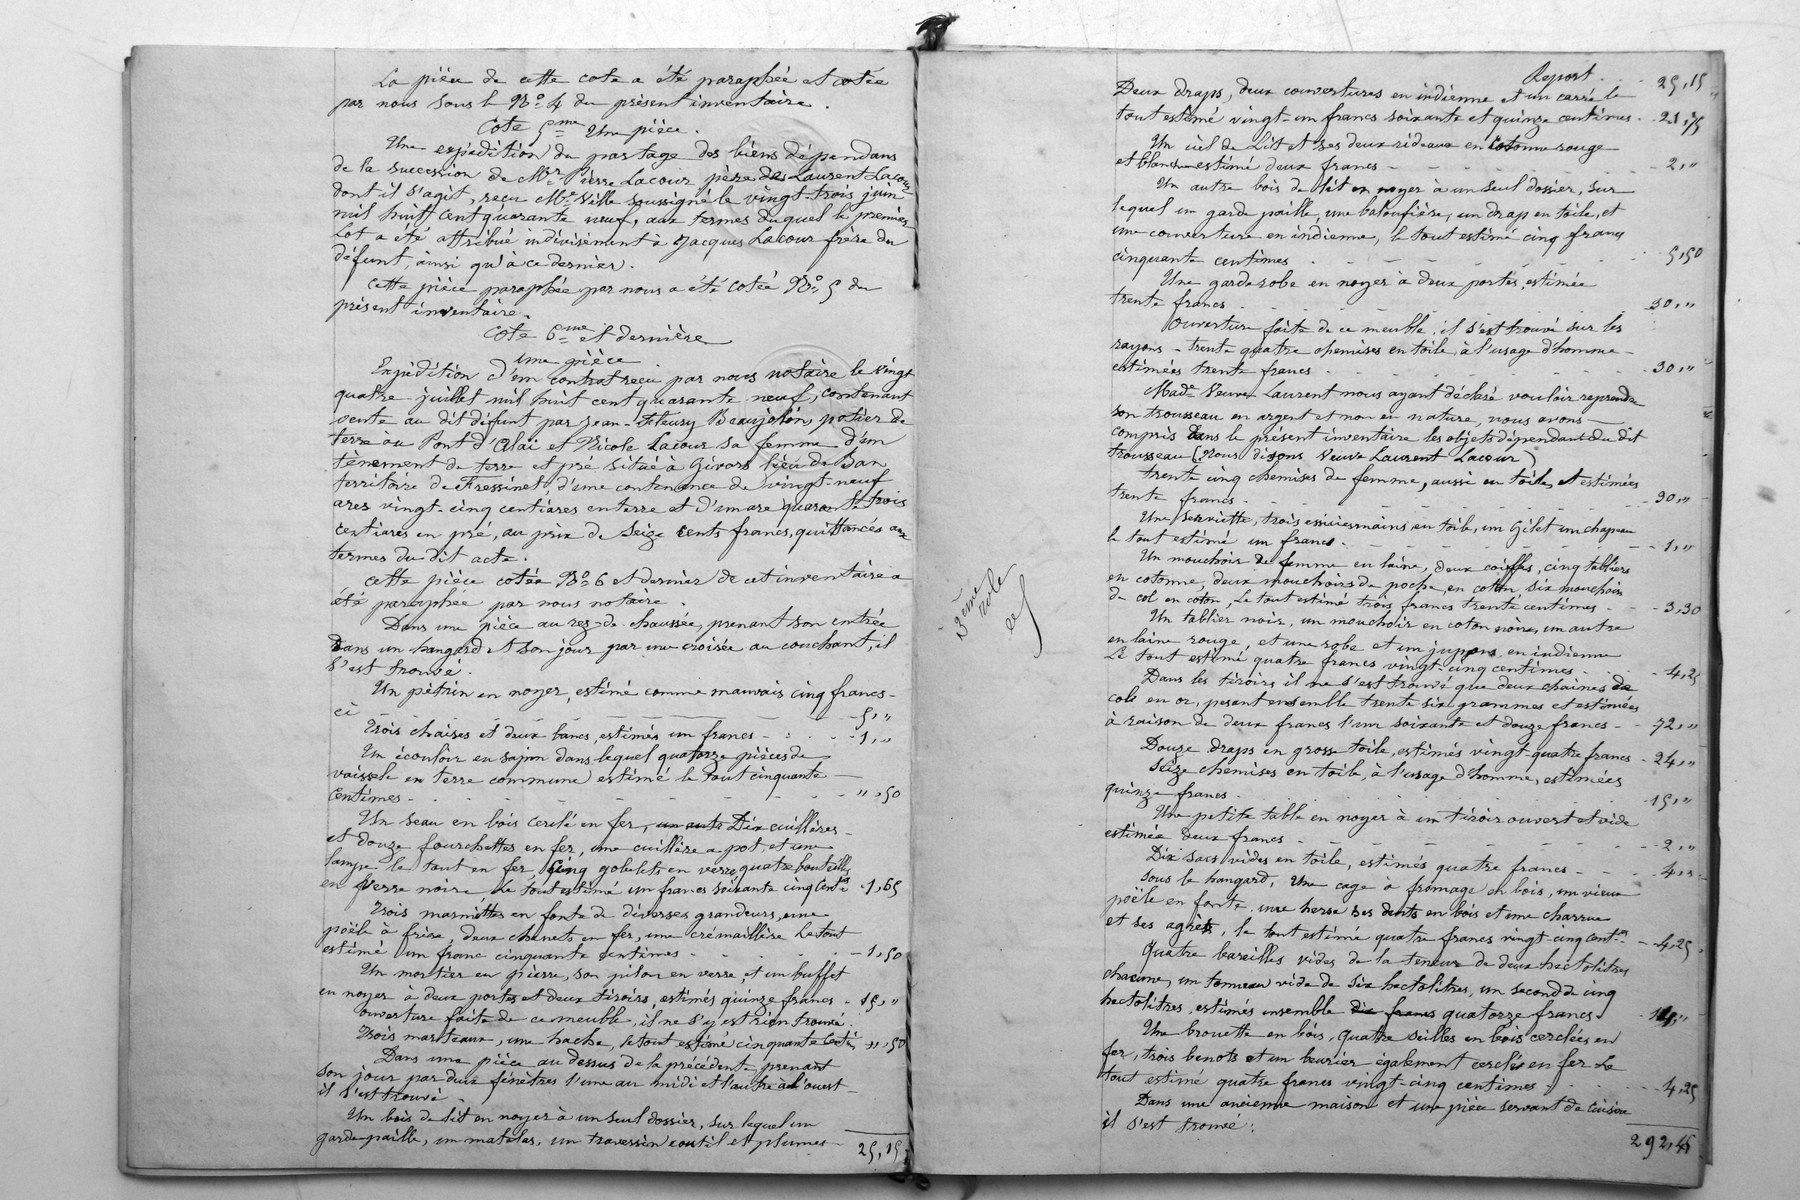 La pièce de cette cote a été paraphée et cotée
par nous sous le No. 4 du présent inventaire.
Cote 5me Une pièce.
Une expédition du partage des biens dépendans
de la succession de Mr. Pierre Lacour père de Laurent Lacour
dont il s'agit, reçu Me. Ville soussigné le vingt-trois juin
mil huit cent quarante neuf, aux termes duquel le premier
Lot a été attribué indivisément à Jacques Lacour frère du
défunt, ainsi qu'à ce dernier.
Cette pièce paraphée par nous a été cotée No. 5 du
présent inventaire.
Cote 6me et dernière
une pièce
Expédition d'un contrat reçu par nous notaire le vingt
quatre juillet mil huit cent quarante neuf, contenant
vente au dit défunt par Jean-Fleury Beaujolin, potier de
terre au Pont d'Alaï et Nicole Lacour sa femme d'un
tènement de terre et pré situé à Givors lieu de Ban
territoire de Fressinet, d'une contenance de vingt-neuf
ares vingt-cinq centiares en terre et d'un are quarante trois
centiares en pré, au prix de Seize cents francs, quittancés aux
termes du dit acte.
Cette pièce cotée No. 6 et dernier de cet inventaire a
été paraphée par nous notaire.
Dans une pièce au rez-de-chaussée, prenant son entrée
Dans un hangard et son jour par une croisée au couchant, il
s'est trouvé.
Un pétrin en noyer, estimé comme mauvais cinq francs-
ci 5,"
Trois chaises et deux bancs, estimés un franc 1,"
Un écouloir en sapin dans lequel quatorze pièces de
vaisselle en terre commune estimé le tout cinquante
centimes ",50
Un seau en bois cerclé en fer, un autre Dix cuillères
et douze fourchettes en fer, une cuillère a pot et une
lampe le tout en fer, Cinq gobelets en verre, quatre bouteilles
en verre noire le tout estimé un franc soixante cinq centes 1,65
Trois marmittes en fonte de diverses grandeurs, une
poêle à frire, deux chenets en fer, une crémaillère Le tout
estimé un franc cinquante centimes 1,50
Un mortier en pierre, son pilon en verre, et un buffet
en noyer à deux portes et deux tiroirs, estimés quinze francs 15,"
Ouverture faite de ce meuble, il ne s'y est rien trouvé.
Trois marteaux, une hache, le tout estimé cinquante centes ",50
Dans une pièce au dessus de la précédente prenant
son jour par deux fenêtres l'une au midi et l'autre à l'ouest
il s'est trouvé
Un bois de lit en noyer à un seul dossier, sur lequel un
garde-paille, un matelas, un traversin coutil et plumes
25,15
3ème rôle
Report 25,15
Deux draps, deux couvertures en indienne et un carré le
tout estimé vingt-un francs soixante et quinze centimes 21,75
Un ciel de Lit et ses deux rideaux en Cotonne rouge
et blanche estimé deux francs 2,"
Un autre bois de lit en noyer à un seul dossier, sur
lequel un garde paille, une baloufière, un drap en toile, et
une couverture en indienne, le tout estimé cinq francs
cinquante centimes 5,50
Une garderobe en noyer à deux portes, estimée
trente francs 30,"
Ouverture faite de ce meuble, il s'est trouvé sur les
rayons - trente quatre chemises en toile à l'usage d'homme
estimées trente francs 30,"
Made. Veuve Laurent nous ayant déclaré vouloir reprendre
son trousseau en argent et non en nature, nous avons
compris dans le présent inventaire les objets dépendant du dit
trousseau (Nous disons Veuve Laurent Lacour)
trente cinq chemises de femme, aussi en toile, et estimées
trente francs 30,"
Une serviette, trois essuiesmains en toile, un Gilet un chapeau
le tout estimé un franc 1,"
Un mouchoir de femme en laine, deux coiffes, cinq tabliers
en cotonne, deux mouchoirs de poche, en coton, six mouchoirs
de col en coton, Le tout estimé trois francs trente centimes 3,30
Un tablier noir, un mouchoir en coton noire, un autre
en laine rouge, et une robe et un jupons en indienne
Le tout estimé quatre francs vingt-cinq centimes 4,25
Dans les tiroirs il ne s'est trouvé que deux chaines de
cole en or, pesant ensemble trente six grammes et estimées
à raison de deux francs l'un soixante et douze francs 72,"
Douze draps en grosse toile, estimés vingt-quatre francs 24,"
Seize chemises en toile, à l'usage d'homme, estimées
quinze francs 15,"
Une petite table en noyer à un tiroir ouvert et vide
estimée deux francs 2,"
Dix sacs vides en toile, estimés quatre francs 4,"
Sous le hangard, Une cage à fromage en bois, un vieux
poële en fonte, une herse ses dents en bois et une charrue
et ses agrès, le tout estimé quatre francs vingt-cinq centes 4,25
Quatre bareilles vides de la teneur de deux hectolitres
chacune, un tonneau vide de six hectolitres, un second de cinq
hectolitres, estimés ensemble dix francs quatorze francs 14,"
Une brouette en bois, Quatre seilles en bois cerclées en
fer, trois benots et un beurier également cerclés en fer Le
tout estimé quatre francs vingt-cinq centimes 4,25
Dans une ancienne maison et une pièce servant de cuisine
il s'est trouvé:
292,45